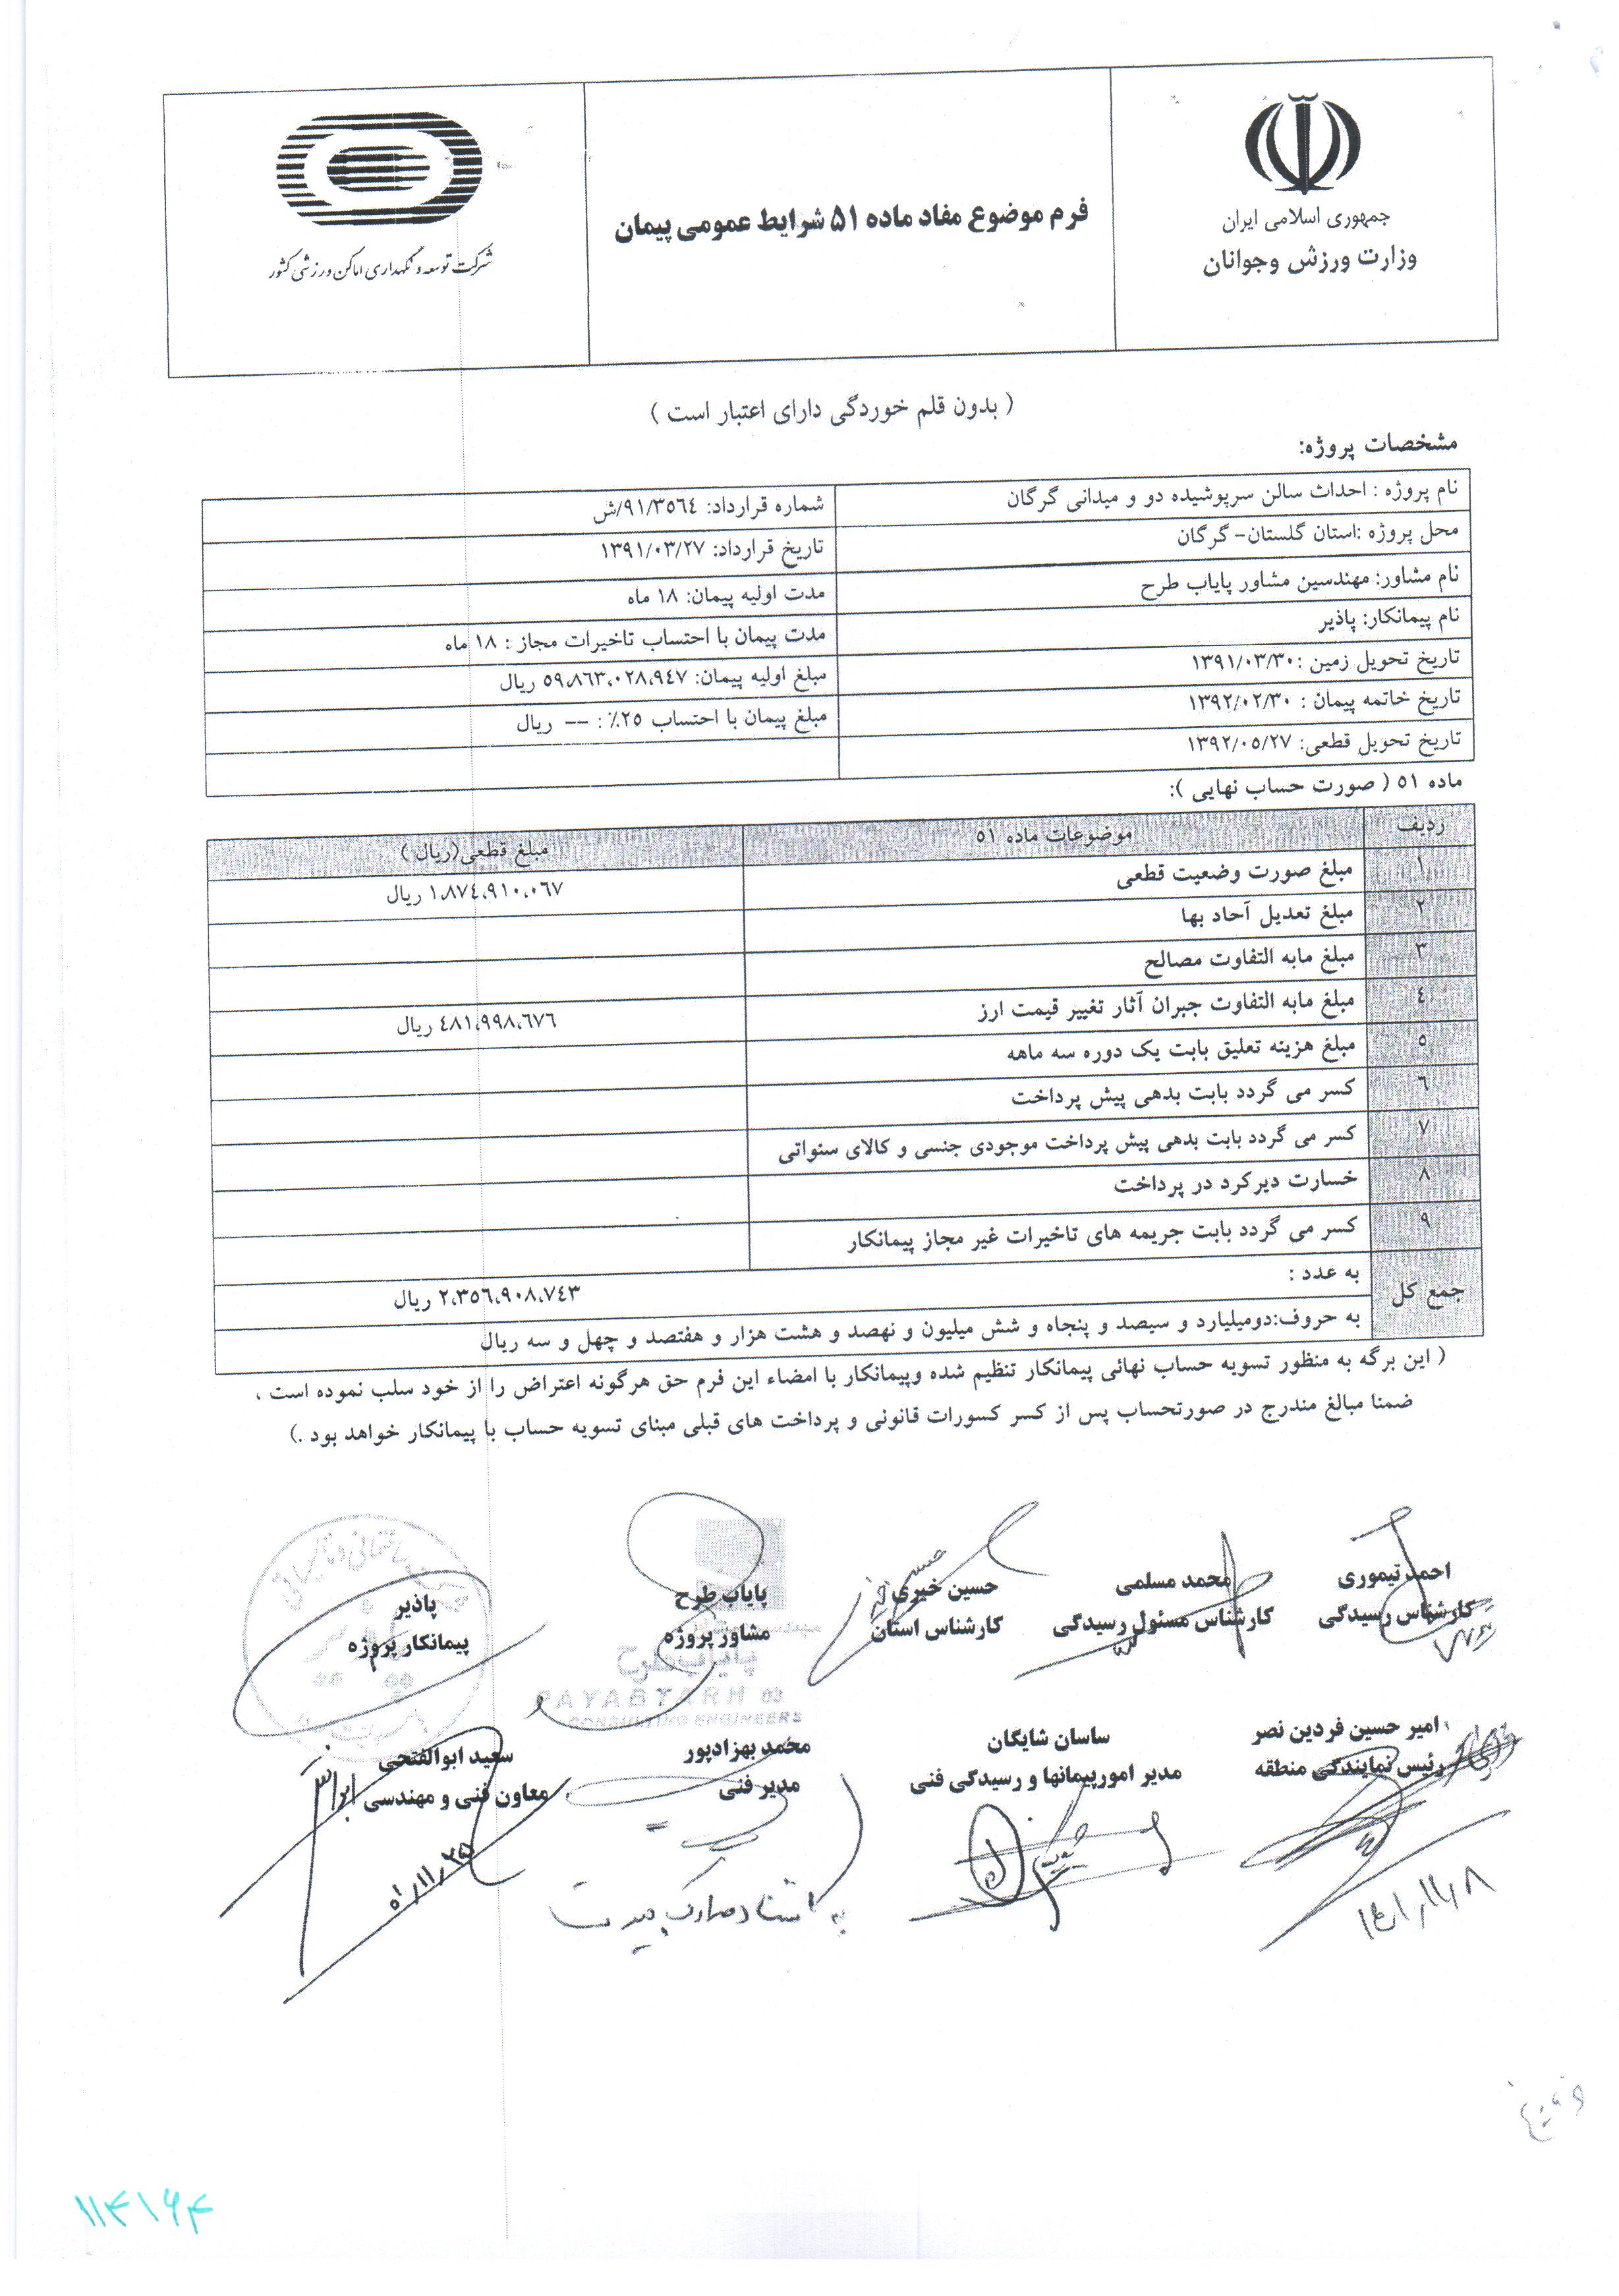 جمهوری اسلامی ایران
وزارت ورزش وجوانان
فرم موضوع مفاد ماده ۵۱ شرایط عمومی پیمان
شرکت توسعه و نگهداری اماکن ورزشی کشور
( بدون قلم خوردگی دارای اعتبار است )
مشخصات پروژه:
نام پروژه : احداث سالن سرپوشیده دو و میدانی گرگان
شماره قرارداد: ۹۱/۳۵٦٤/ش
محل پروژه :استان گلستان- گرگان
تاریخ قرارداد: ۱۳۹۱/۰۳/۲۷
نام مشاور: مهندسین مشاور پایاب طرح
مدت اولیه پیمان: ۱۸ ماه
نام پیمانکار: پاذیر
مدت پیمان با احتساب تاخیرات مجاز : ۱۸ ماه
تاریخ تحویل زمین :۱۳۹۱/۰۳/۳۰
مبلغ اولیه پیمان: ۵۹،۸٦۳،۰۲۸،۹٤۷ ریال
تاریخ خاتمه پیمان : ۱۳۹۲/۰۲/۳۰
مبلغ پیمان با احتساب ۲۵٪ : -- ریال
تاریخ تحویل قطعی: ۱۳۹۲/۰۵/۲۷
ماده ۵۱ ( صورت حساب نهایی ):
ردیف موضوعات ماده ۵۱ مبلغ قطعی(ریال )
۱ مبلغ صورت وضعیت قطعی ۱،۸۷٤،۹۱۰،۰٦۷ ریال
۲ مبلغ تعدیل آحاد بها
۳ مبلغ مابه التفاوت مصالح
٤ مبلغ مابه التفاوت جبران آثار تغییر قیمت ارز ٤۸۱،۹۹۸،٦۷٦ ریال
۵ مبلغ هزینه تعلیق بابت یک دوره سه ماهه
٦ کسر می گردد بابت بدهی پیش پرداخت
۷ کسر می گردد بابت بدهی پیش پرداخت موجودی جنسی و کالای سنواتی
۸ خسارت دیرکرد در پرداخت
۹ کسر می گردد بابت جریمه های تاخیرات غیر مجاز پیمانکار
جمع کل به عدد : ۲،۳۵٦،۹۰۸،۷٤۳ ریال
به حروف:دومیلیارد و سیصد و پنجاه و شش میلیون و نهصد و هشت هزار و هفتصد و چهل و سه ریال
( این برگه به منظور تسویه حساب نهائی پیمانکار تنظیم شده وپیمانکار با امضاء این فرم حق هرگونه اعتراض را از خود سلب نموده است ،
ضمنا مبالغ مندرج در صورتحساب پس از کسر کسورات قانونی و پرداخت های قبلی مبنای تسویه حساب با پیمانکار خواهد بود .)
احمد تیموری محمد مسلمی حسین خیری پایاب طرح پاذیر
کارشناس رسیدگی کارشناس مسئول رسیدگی کارشناس استان مشاور پروژه پیمانکار پروژه
پایاب طرح
PAYABTARH 03
CONSULTING ENGINEERS
امیر حسین فردین نصر ساسان شایگان محمد بهزادپور سعید ابوالفتحی
رئیس نمایندگی منطقه مدیر امورپیمانها و رسیدگی فنی مدیر فنی معاون فنی و مهندسی
۰۱/۱۱/۲۵
۱۴۰۱/۱۱/۰۸
۱۱۴۱۶۴